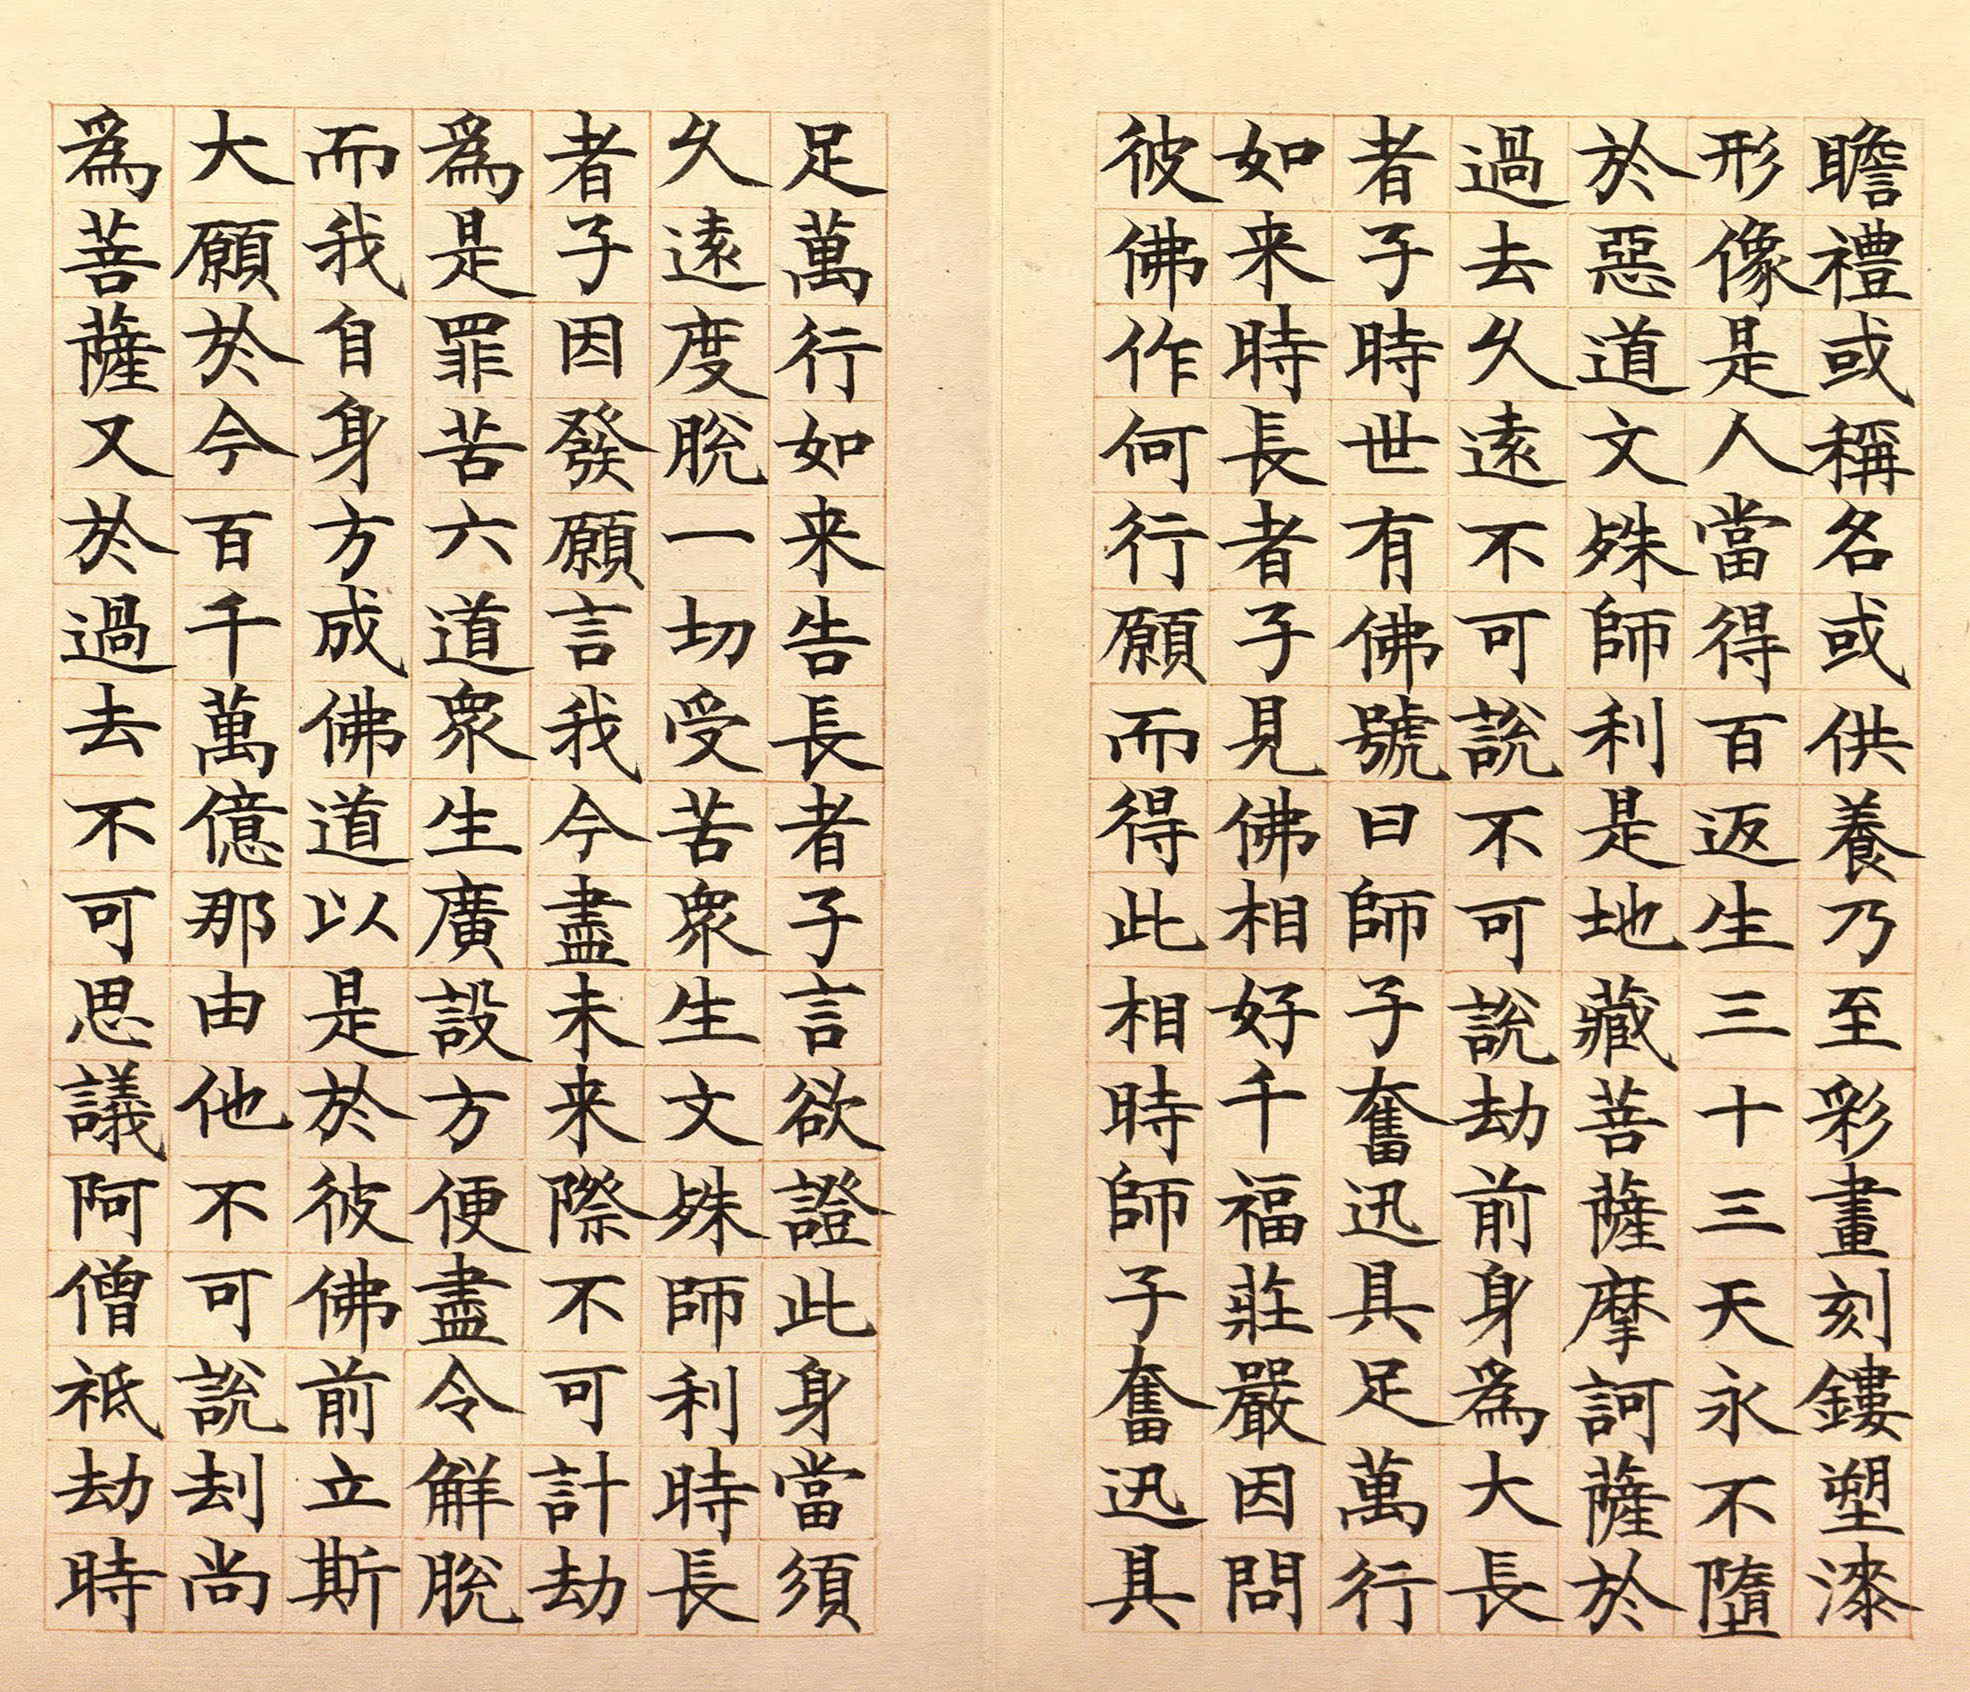 瞻禮或稱名或供養乃至彩畫刻鏤塑漆
形像是人當得百返生三十三天永不墮
於惡道文殊師利是地藏菩薩摩訶薩於
過去久遠不可說不可說劫前身為大長
者子時世有佛號曰師子奮迅具足萬行
如来時長者子見佛相好千福莊嚴因問
彼佛作何行願而得此相時師子奮迅具
足萬行如来告長者子言欲證此身當須
久遠度脫一切受苦衆生文殊師利時長
者子因發願言我今盡未来際不可計劫
為是罪苦六道衆生廣設方便盡令解脫
而我自身方成佛道以是於彼佛前立斯
大願於今百千萬億那由他不可說刦尚
為菩薩又於過去不可思議阿僧祇劫時